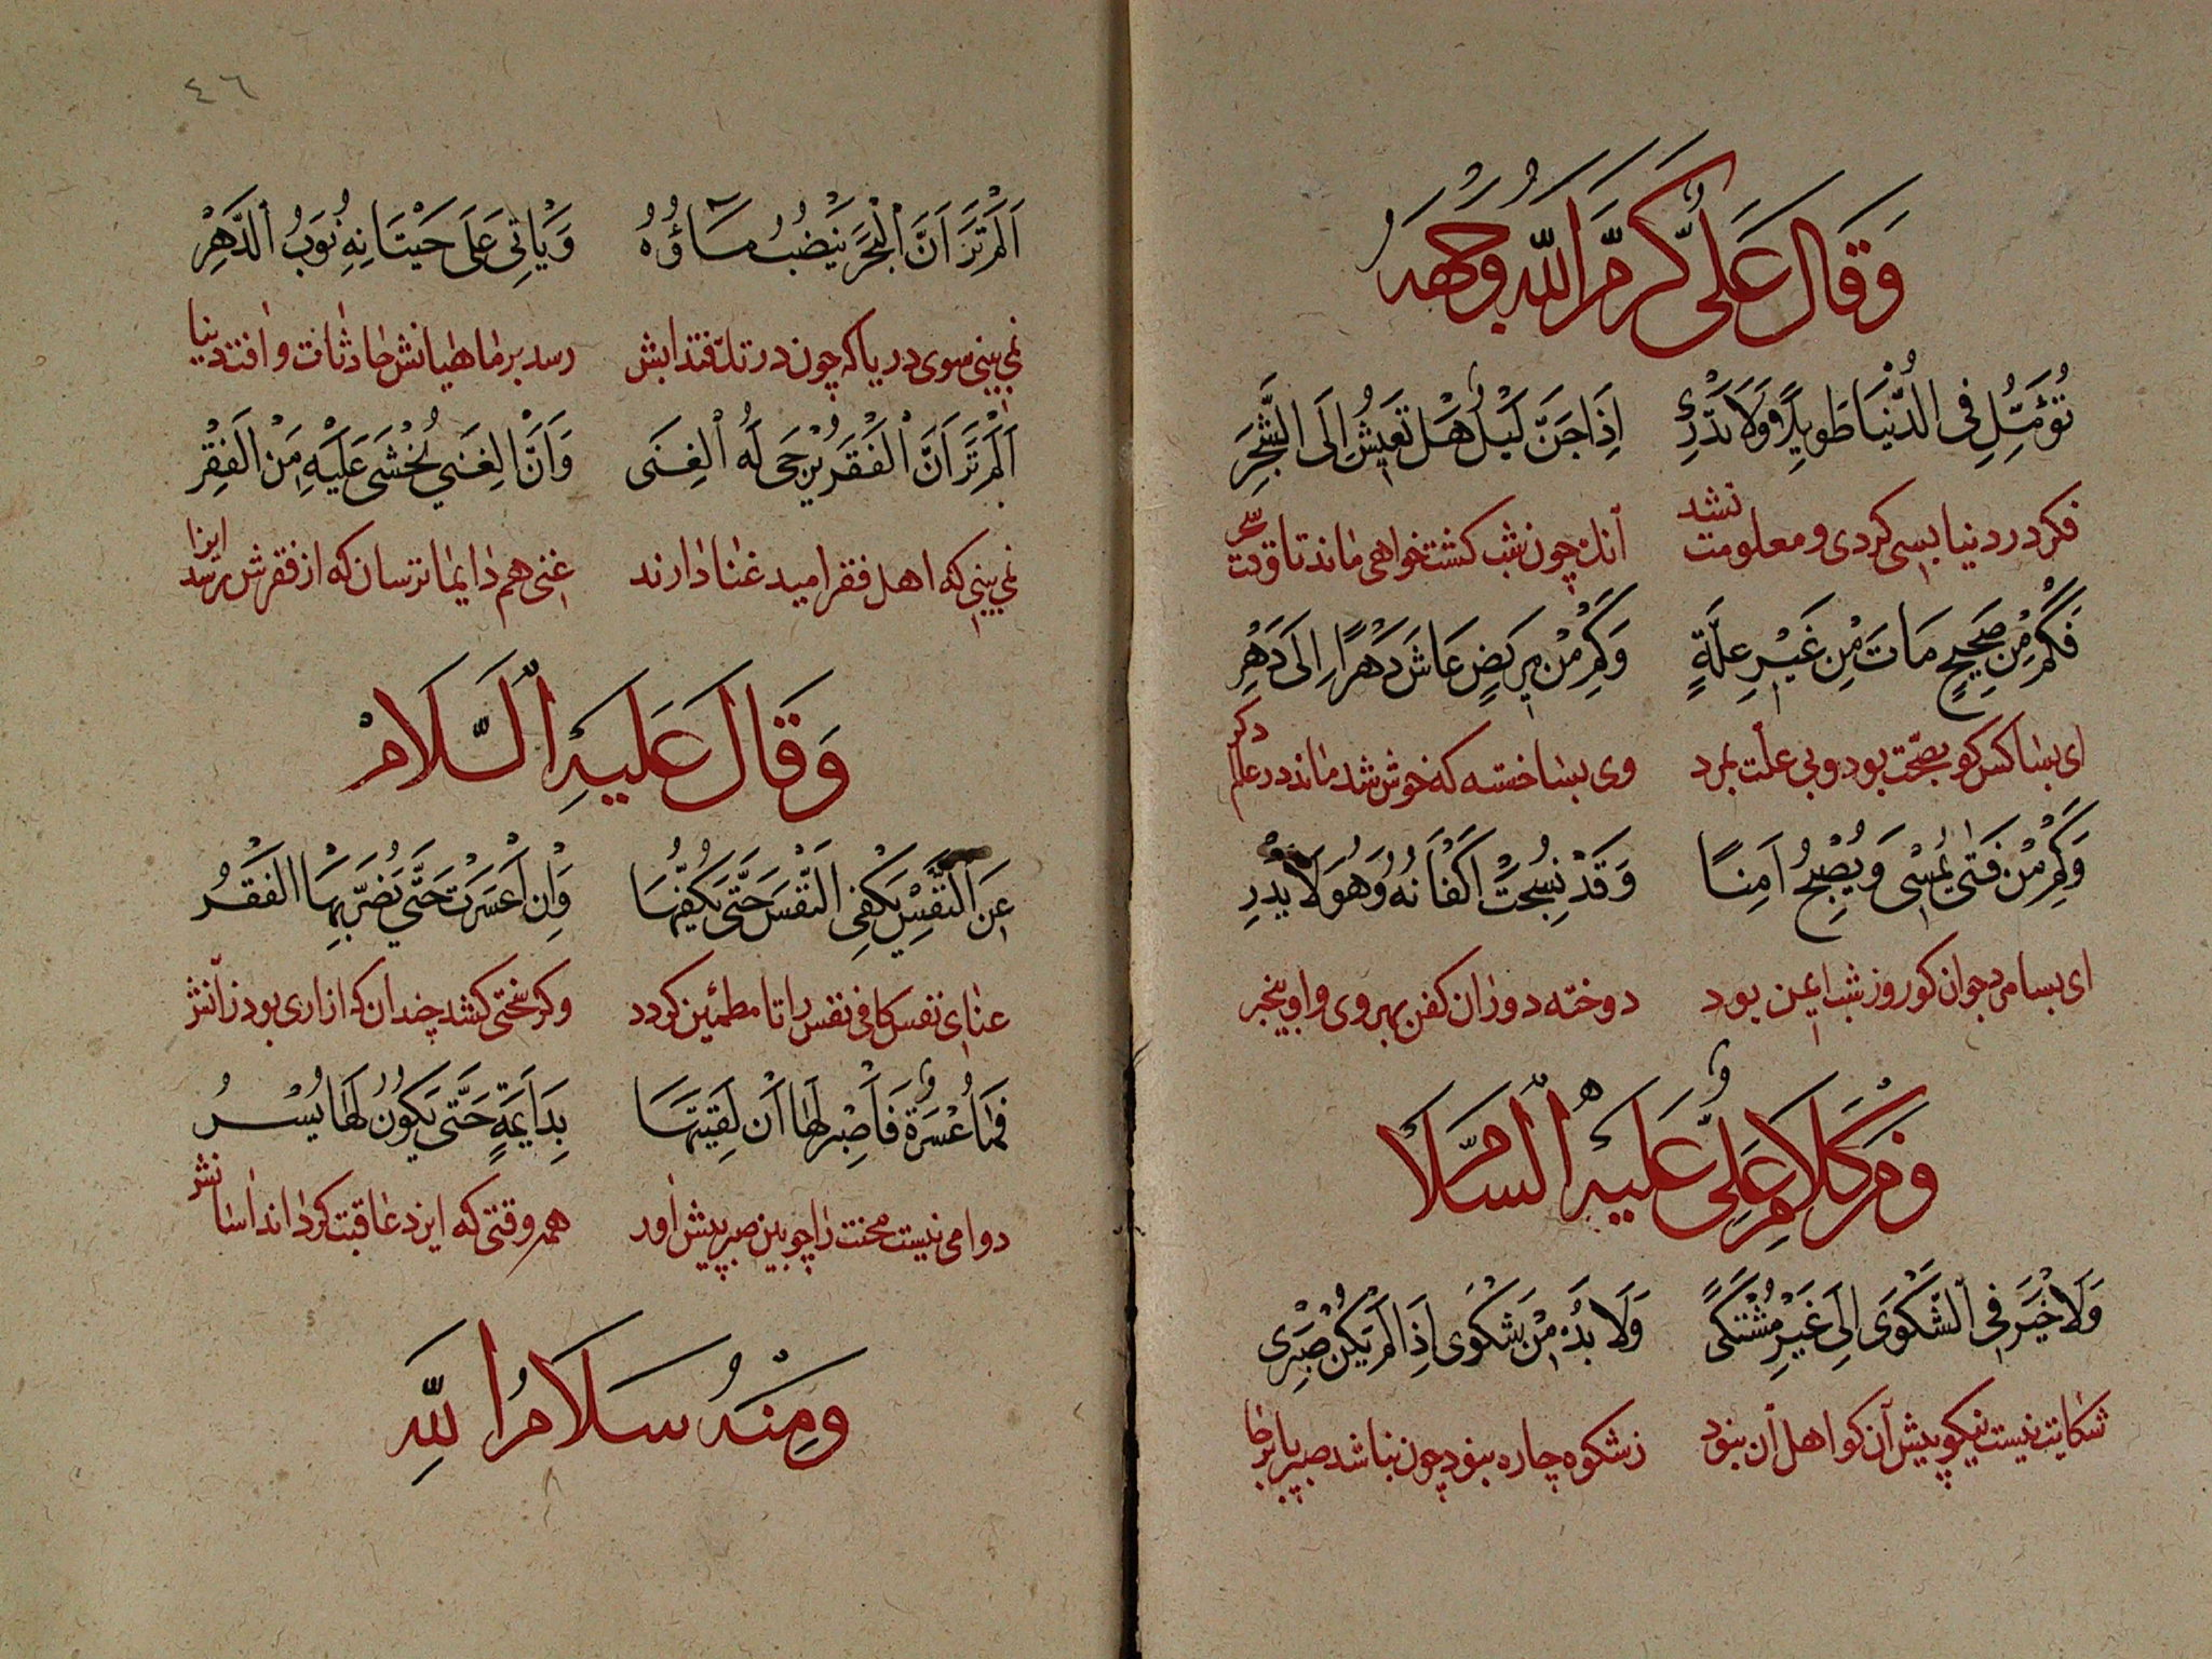 وَقَالَ عَلِيٌّ كَرَّمَ اللّٰهُ وَجْهَهُ
تُؤَمِّلُ فِي الدُّنْيَا طَوِيلًا وَلَا تَدْرِي اِذَا جَنَّ لَيْلٌ هَلْ تَعِيشُ اِلَى الْفَجْرِ
فکر در دنیا بسی کردی و معلومت نشد آنک چون شب کشت خواهی ماند تا وقت سحر
فَكَمْ مِنْ صَحِيحٍ مَاتَ مِنْ غَيْرِ عِلَّةٍ وَكَمْ مِنْ مَرِيضٍ عَاشَ دَهْرًا اِلَى دَهْرِ
ای بسا کس کو بصحّت بود و بی علّت بمرد وی بسا خسته که خوش شد ماند در عالم دکر
وَكَمْ مِنْ فَتًى يُمْسِي وَيُصْبِحُ اٰمِنًا وَقَدْ نُسِجَتْ اَكْفَانُهُ وَهُوَ لَا يَدْرِ
ای بسا مرد جوان کو روز شب ایمن بود دوخته دوران کفن بهر وی و او بیخبر
وَمِنْ كَلَامِ عَلِيٍّ عَلَيْهِ السَّلَامُ
وَلَا خَيْرَ فِي الشَّكْوَى اِلَى غَيْرِ مُشْتَكًى وَلَا بُدَّ مِنْ شَكْوَى اِذَا لَمْ يَكُنْ صَبْرِي
شکایت نیست نیکو پیش آن کو اهل آن نبود ز شکوه چاره نبود چون نباشد صبر پا برجا
٤٦
اَلَمْ تَرَ اَنَّ الْبَحْرَ يَنْضُبُ مَاؤُهُ وَيَاْتِي عَلَى حِيتَانِهِ نُوَبُ الدَّهْرِ
نمی بینی سوی دریا که چون در تک فتد آبش رسد بر ماهیانش حادثات و افت دنیا
اَلَمْ تَرَ اَنَّ الْفَقْرَ يُرْجَى لَهُ الْغِنَى وَاَنَّ الْغِنَي يُخْشَى عَلَيْهِ مِنَ الْفَقْرِ
نمی بینی که اهل فقر امید غنا دارند غنی هم دایما ترسان که از فقرش رسد ایذا
وَقَالَ عَلَيْهِ السَّلَامْ
النَّفْسِ يَكْفِي النَّفْسَ حَتَّى يَكُفَّهَا وَاِنْ اَعْسَرَتْ حَتَّى يَضُرَّ بِهَا الْفَقْرُ
غنای نفس کافی نفس را تا مطمئن کردد وکر سختی کشد چندان که ازاری بود زانش
فَمَا عُسْرَةٌ فَاصْبِرْ لَهَا اَنْ لَقِيتَهَا بِدَايِمَةٍ حَتَّى يَكُونَ لَهَا يُسْرُ
دوامی نیست محنت را چو بینی صبر پیش اور همه وقتی که ایزد عاقبت کرداند آسانش
وَمِنْهُ سَلَامُ اللّٰهِ